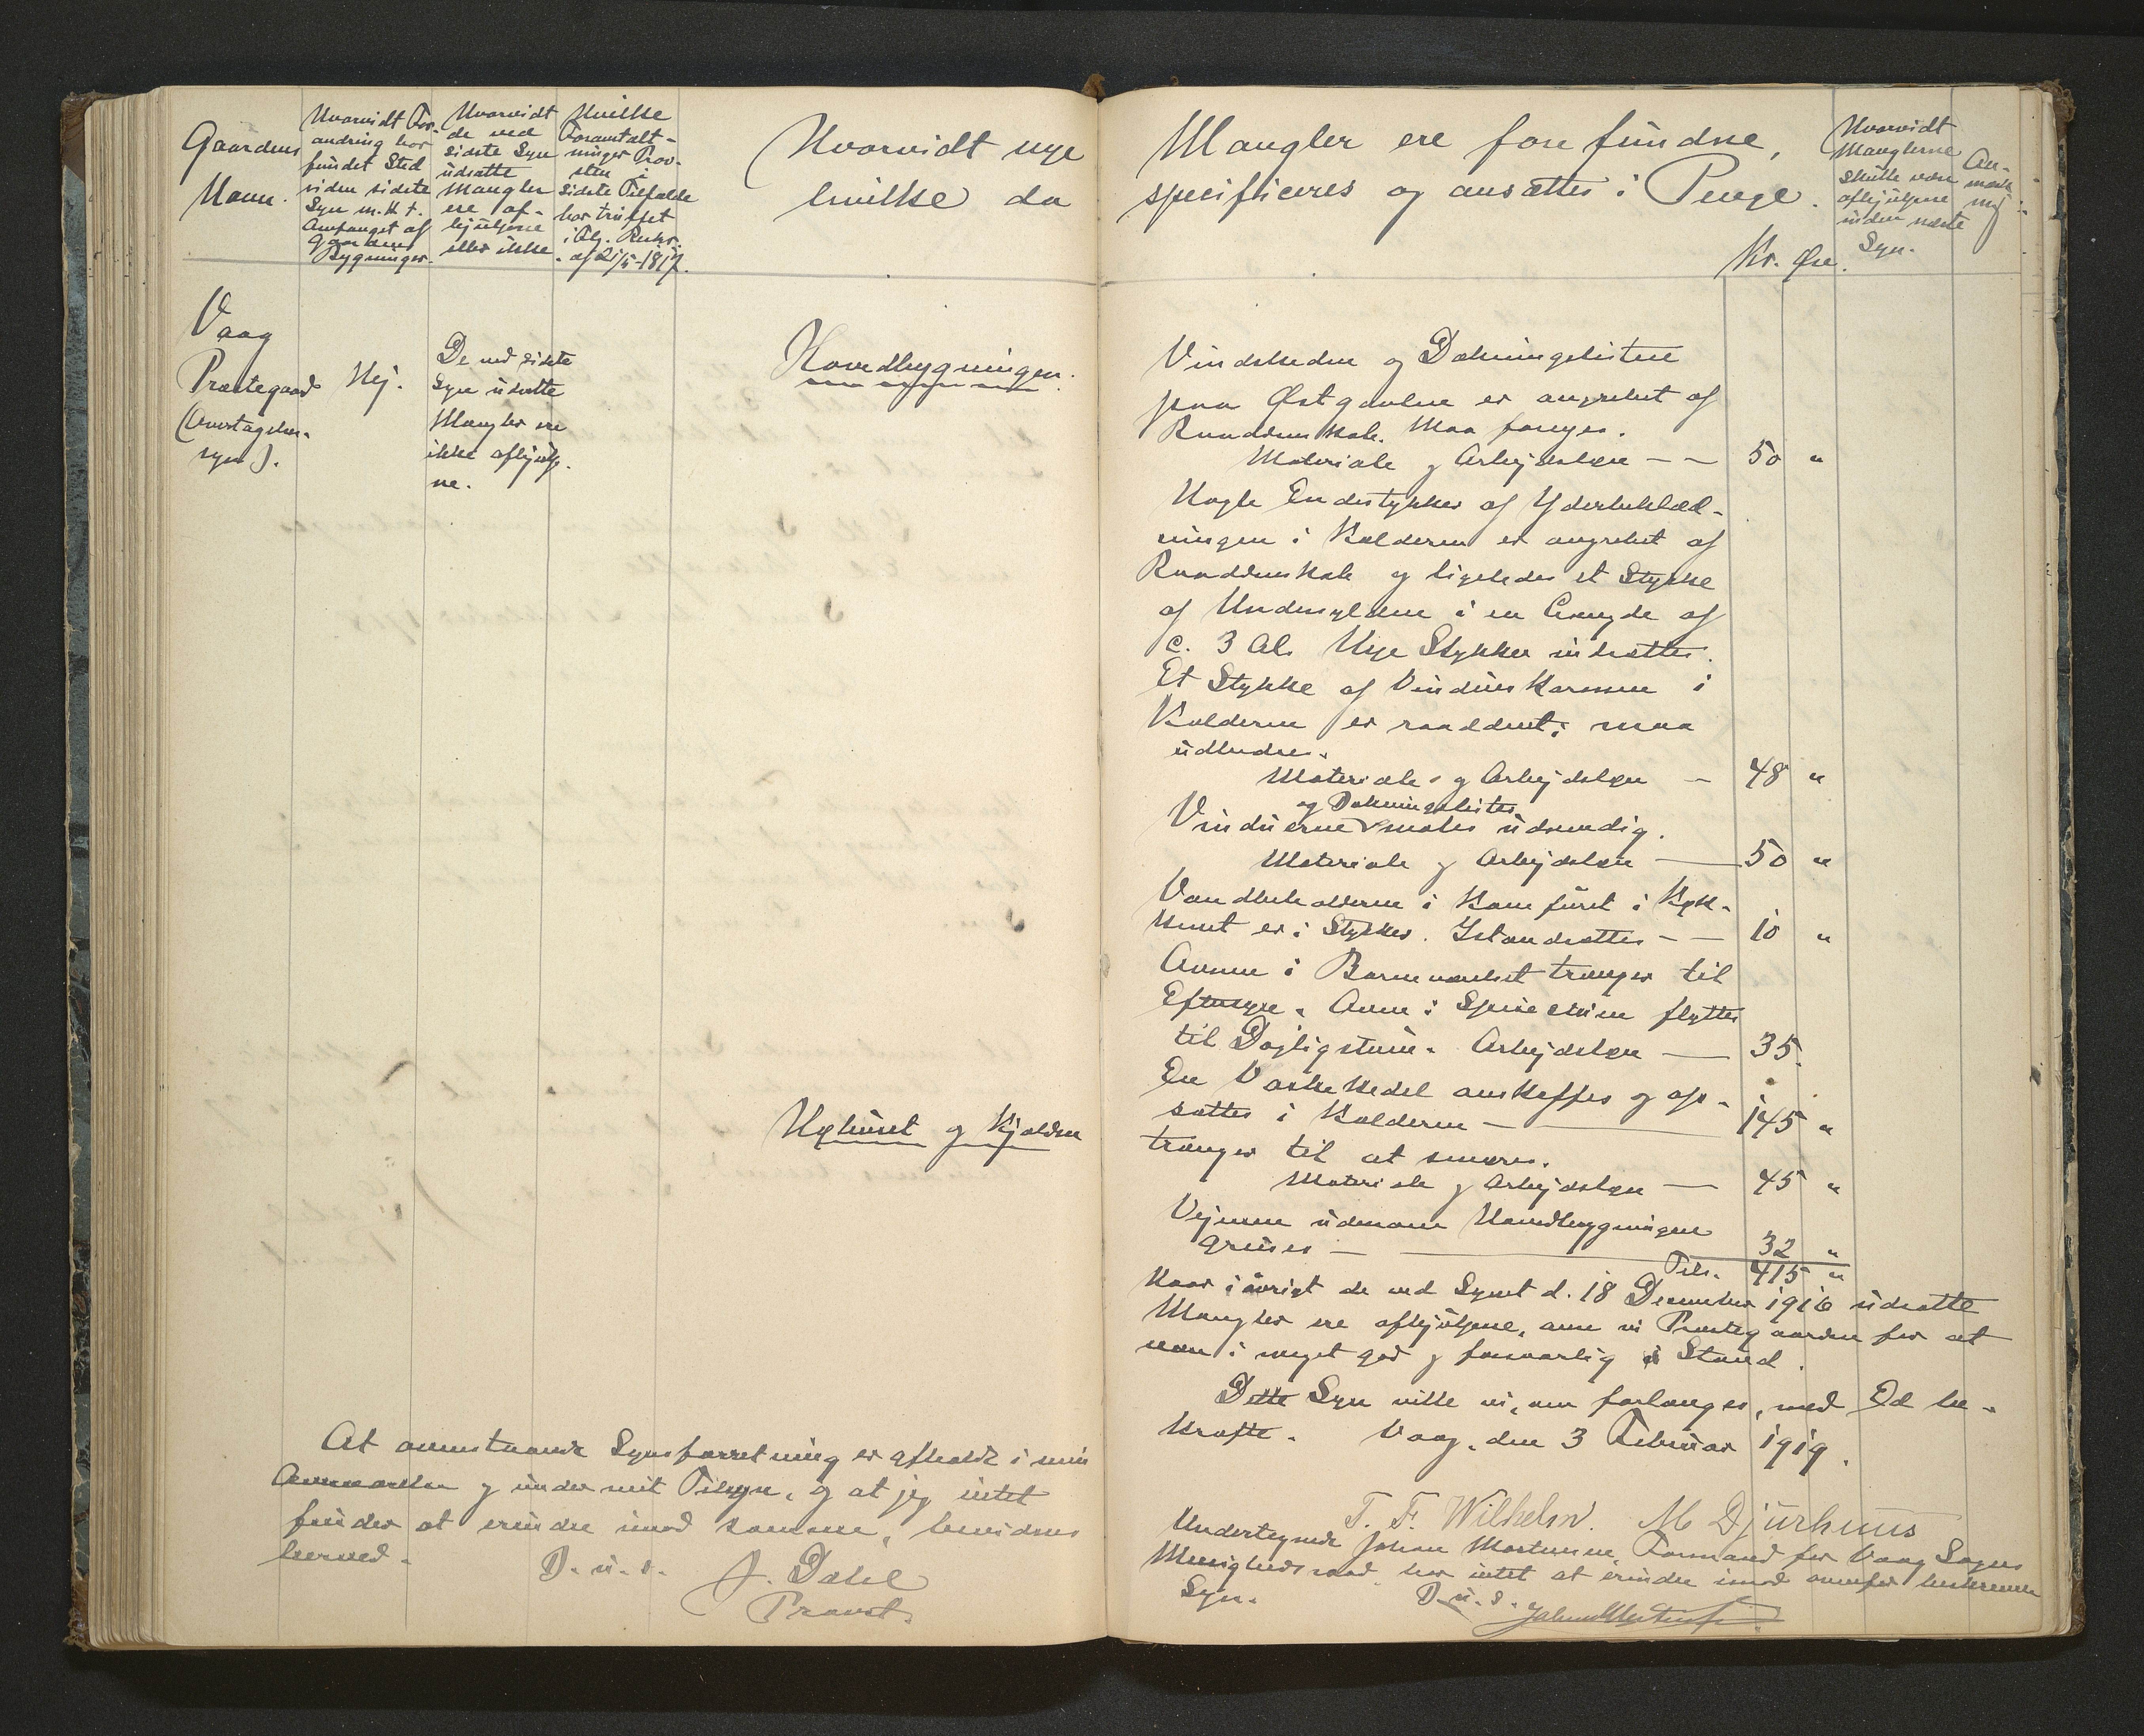 Gaardens
Navn.
Hvorvidt For-
andring har
fundet Sted
siden sidste
Syn m. H. t.
Omfanget af
Gaardens
Bygninger.
Hvorvidt
de ved
sidste Syn
udsatte
Mangler
ere af-
hjulpne
eller ikke
Hvilke
Foranstalt-
ninger Prov-
sten i
sidste Tilfælde
har truffet
i Flg. Reskr.
af 21/5-1817.
Hvorvidt nye
hvilke da
Vaag
Præstegaard
(Overtagelses-
syn).
Nej.
De ved sidste
Syn udsatte
Mangler ere
ikke afhjulp-
ne.
Hovedbygningen.
Uxhuset og Kjalden
At ovenstaaende Synsforretning er afholdt i min
Overværelse og under mit Tilsyn, og at jeg intet
finder at erindre imod samme, bevidnes
herved.
D. u. s.
J. Dahl
Provst.
Mangler ere fore fundne,
specificeres og ansættes i Penge.
Kr. Øre.
Hvorvidt
Manglerne
skulle være
afhjulpne
inden næste
Syn.
An-
mærk-
ning
Vindskeden og Dækningslisten
paa Østgavlen er angrebet af
Raaddenskab. Maa fornyes.
Materiale og Arbejdsløn — — 50 "
Nogle Endestykker af Yderbeklæd-
ningen i Kælderen er angrebet af
Raaddenskab og ligeledes et Stykke
af Undersylden i en Længde af
c. 3 Al. Nye Stykker indsættes.
Et Stykke af Vindueskarmen i
Kælderen er raaddent; maa
udbedres.
Materiale og Arbejdsløn — 48 "
og Dækningslister
Vinduerne males udvendig.
Materiale og Arbejdsløn — 50 "
Vandbeholderen i Komfuret i Køk-
kenet er i Stykker. Istandsættes — — 10 "
Ovnen i Barneværelset trænger til
Eftersyn. Ovnen i Spisestuen flyttes
til Dagligstuen. Arbejdsløn — 35.
En Vaskekedel anskaffes og op-
sættes i Kælderen — 145 "
trænger til at smøres.
Materiale og Arbejdsløn — 45 "
Vejene udenom Hovedbygningen
gruses — 32 "
Tils. 415 "
Naar i øvrigt de ved Synet d. 18 December 1916 udsatte
Mangler ere afhjulpne, anse vi Præstegaarden for at
være i meget god og forsvarlig Stand.
Dette Syn ville vi, om forlanges, med Ed be-
kræfte. Vaag, den 3 Februar 1919.
T. F. Wilhelm. M Djurhuus
Undertegnede Johan Mortensen, Formand for Vaag Sogns
Menighedsraad, har intet at erindre imod ovenfor beskrevne
Syn.
D. u. s. Johan Mortensen